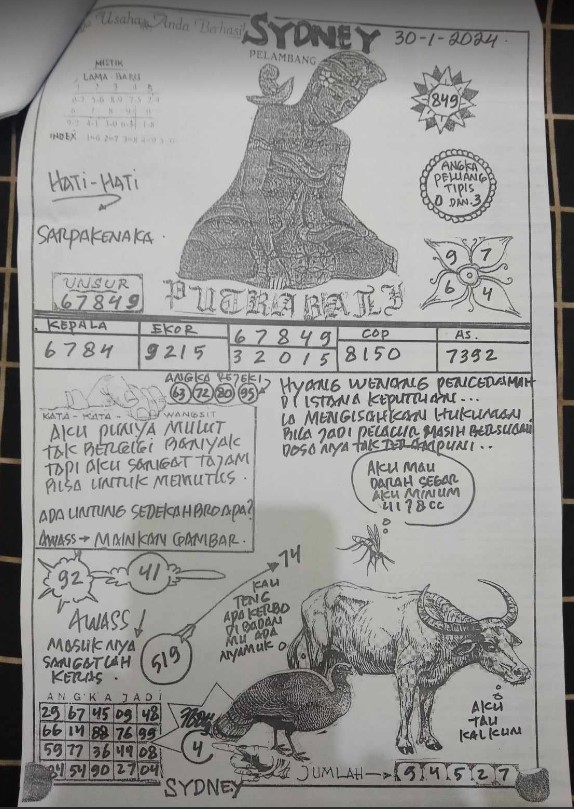 Usaha Anda Berhasil
SYDNEY
30-1-2024.
PELAMBANG
MISTIK
LAMA BARU
INDEX
849
HATI-HATI
ANGKA
PELUANG
TIPIS
0 DAN 3
SARPAKENAKA.
9 7
6 4
UNSUR
67849
PUTRA BALI
KEPALA
6784
EKOR
9215
67849
32015
COP
8150
AS.
7392
ANGKA REJEKI
63 72 80 95
KATA-KATA WANGSIT
AKU PUNYA MULUT
TAK BERGIGI BANYAK
TAPI AKU SANGAT TAJAM
BISA UNTUK MEMUTUS.
ADA UNTUNG SEDEKAH BRO APA?
AWASS → MAINKAN GAMBAR.
HYANG WENANG
DI ISTANA
IA MENGISAHKAN HUKUMAN.
BILA JADI PELACUR MASIH
DOSANYA TAK TERAMPUNI..
AKU MAU
DARAH SEGAR
AKU MINUM
4178 CC
92
41
74
AWASS!
MASUKNYA
SANGATLAH
KERAS.
519
KAU
TENG
ADA KERBO
DI BADAN
MU ADA
NYAMUK
ANGKA JADI
29 67 45 09 48
66 14 88 76 99
59 77 36 49 08
84 54 90 27 04
4
AKU
TAU
KALKUN
JUMLAH → 5 4 5 2 7
SYDNEY